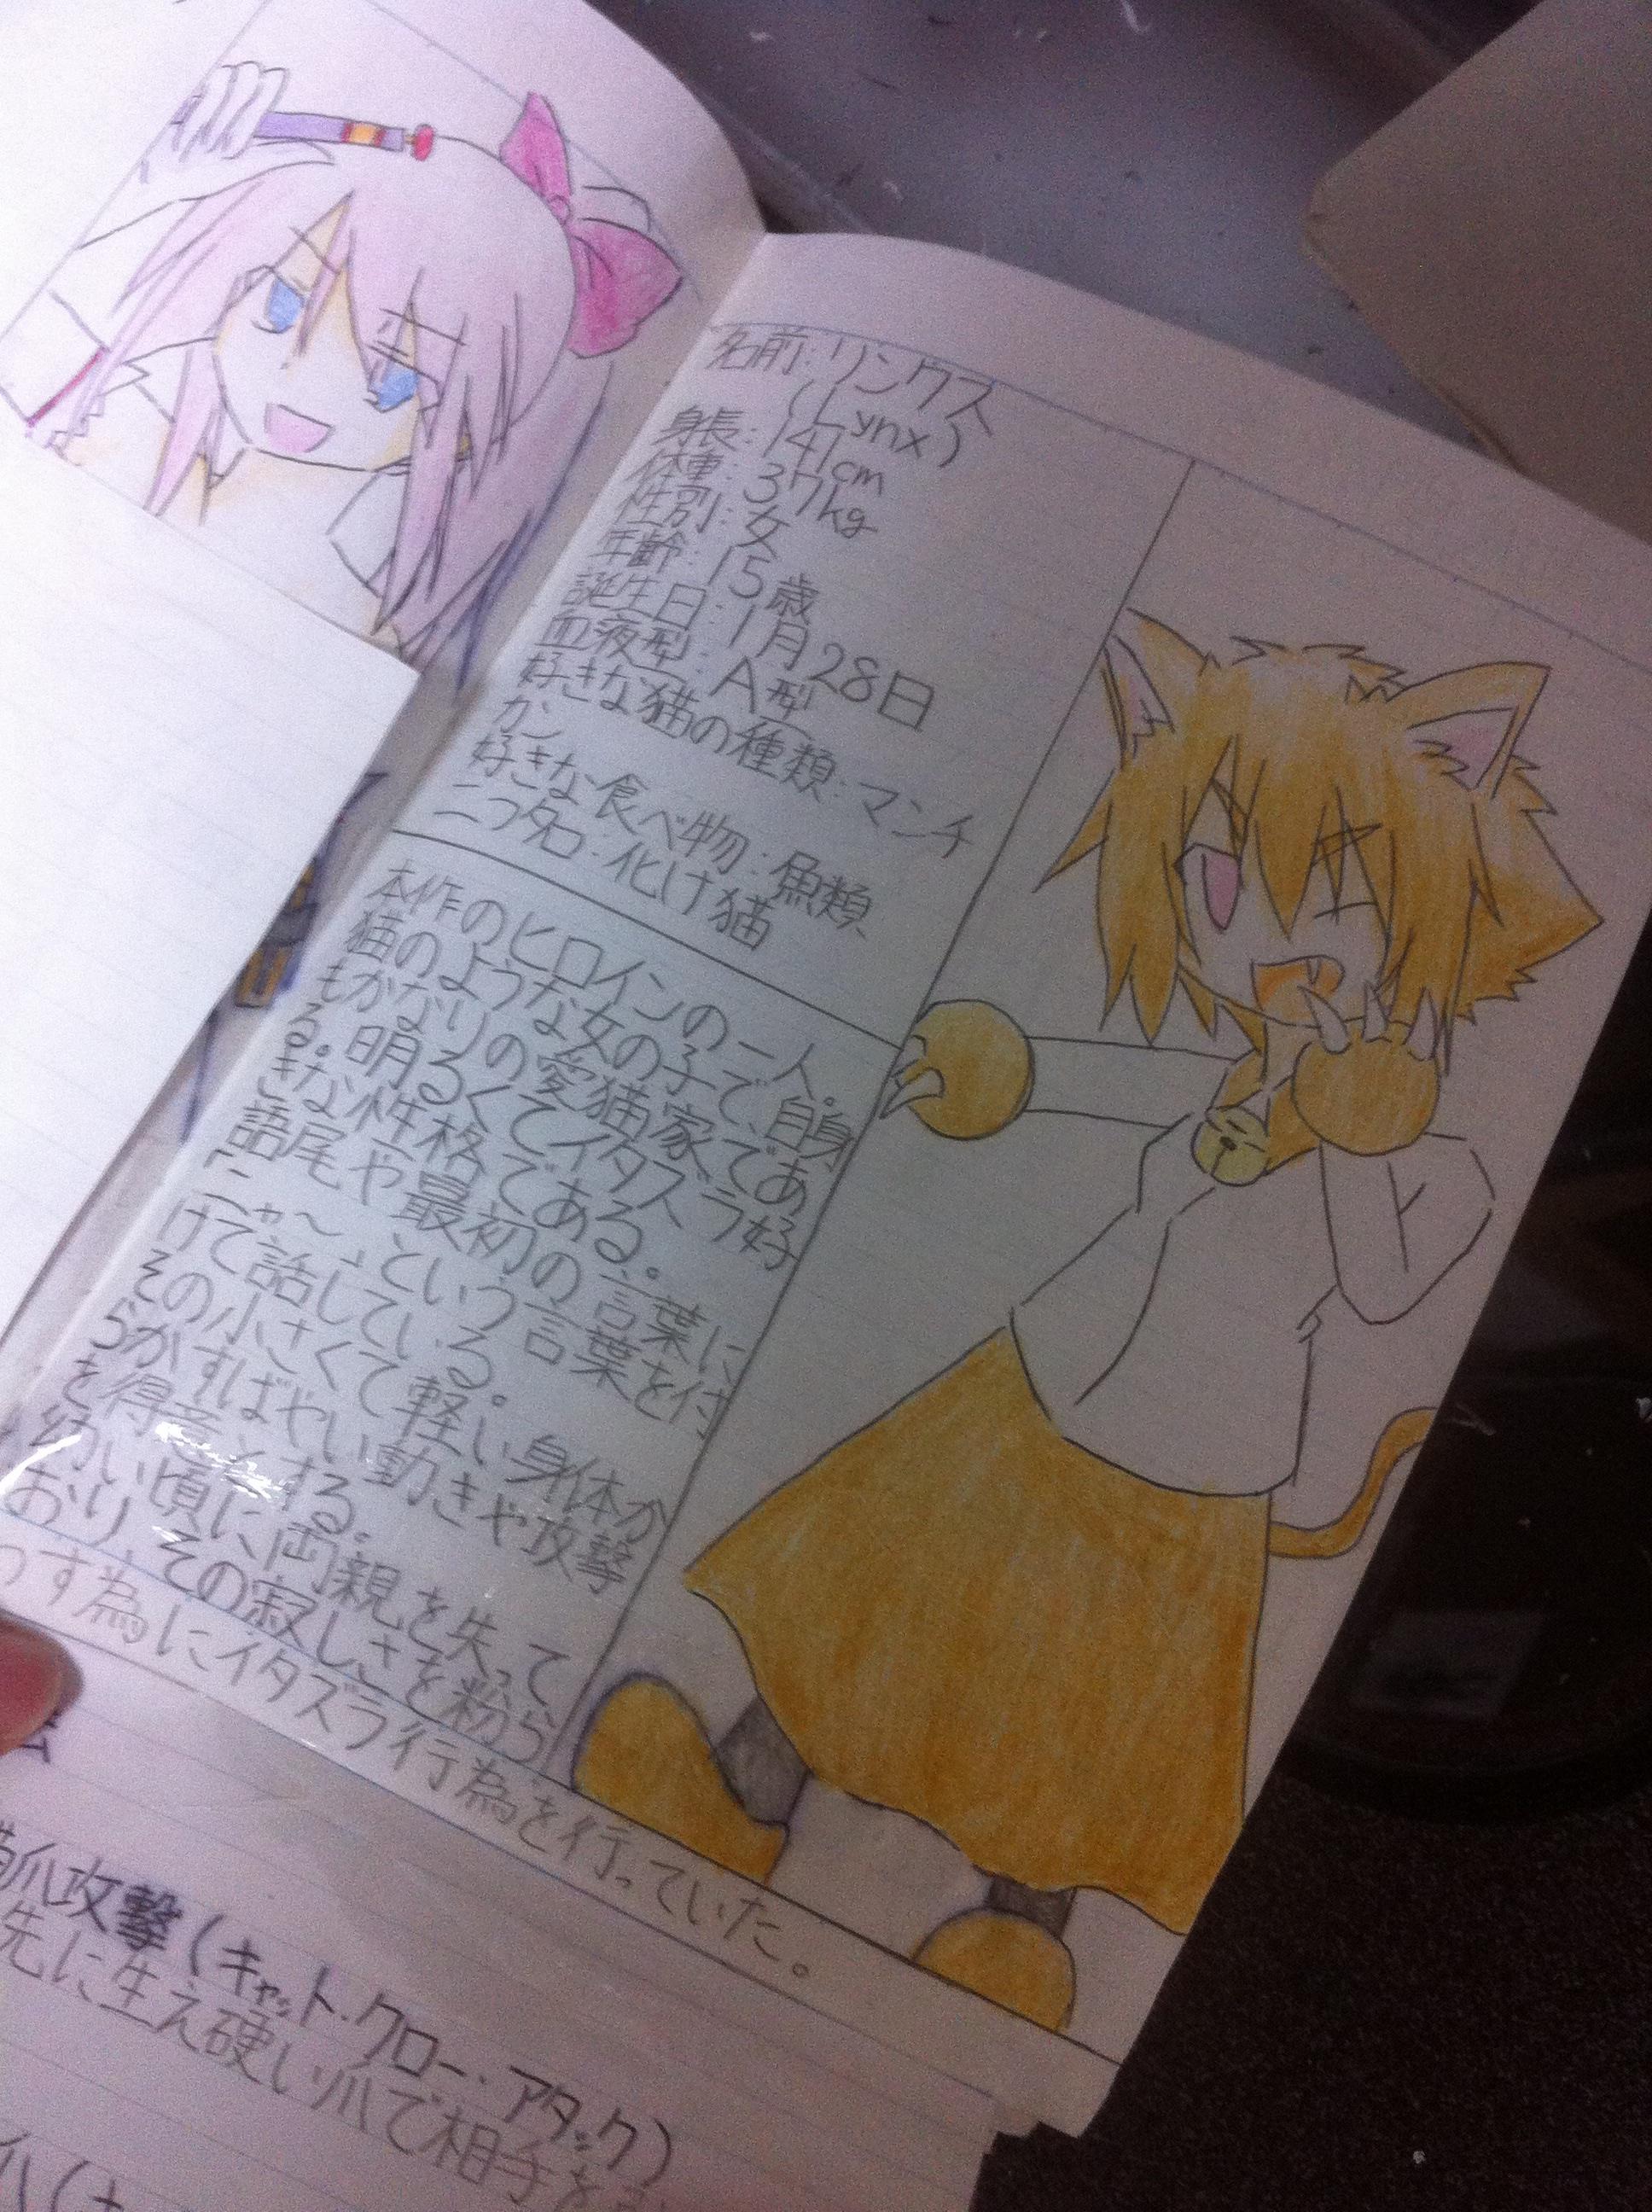 名前:リンクス
(Lynx)
身長:141cm
体重:37kg
性別:女
年齢:15歳
誕生日:1月28日
血液型:A型
好きな猫の種類:マンチ
カン
好きな食べ物:魚類
二つ名:化け猫
本作のヒロインの一人。
猫のような女の子で、自身
もかなりの愛猫家であ
る。明るくてイタズラ好
きな性格である。
語尾や最初の言葉に
「ニャ〜」という言葉を付
けて話している。
その小さくて軽い身体か
らかすばやい動きや攻撃
を得意とする。
幼い頃に両親を失って
おり、その寂しさを紛ら
つす為にイタズラ行為を行っていた。
爪攻撃(キャット・クロー・アタック)
先に生え硬い爪で相手を